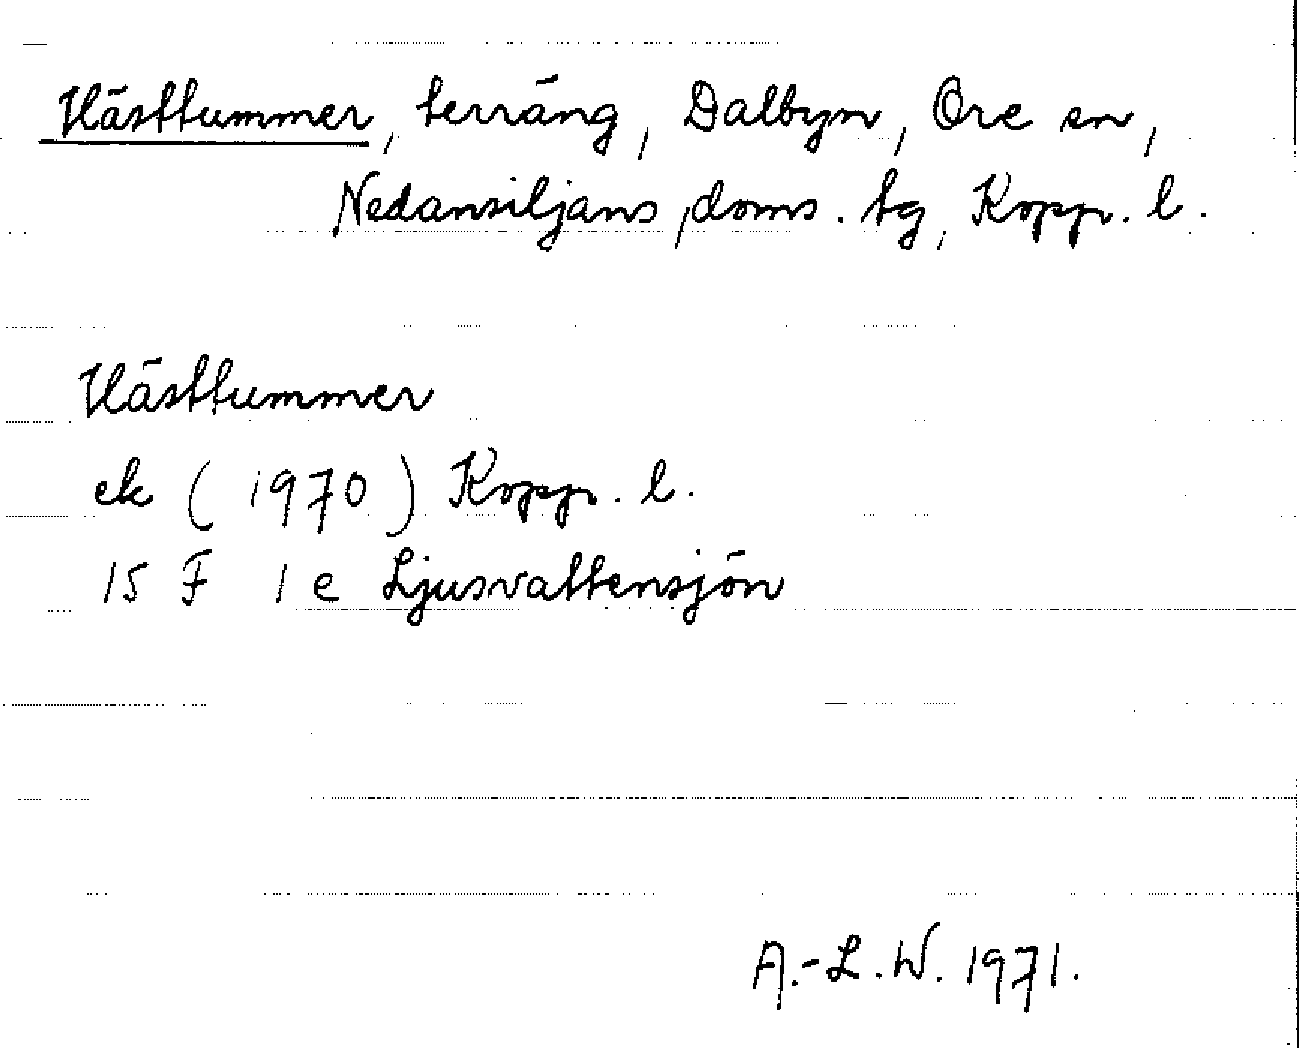 Västtummer, terräng, Dalbyn, Ore sn,
Nedansiljans doms. tg, Kopp. l.
Västtummer
ek (1970) Kopp. l.
15 F 1 e Ljusvattensjön
A.-L.W. 1971.